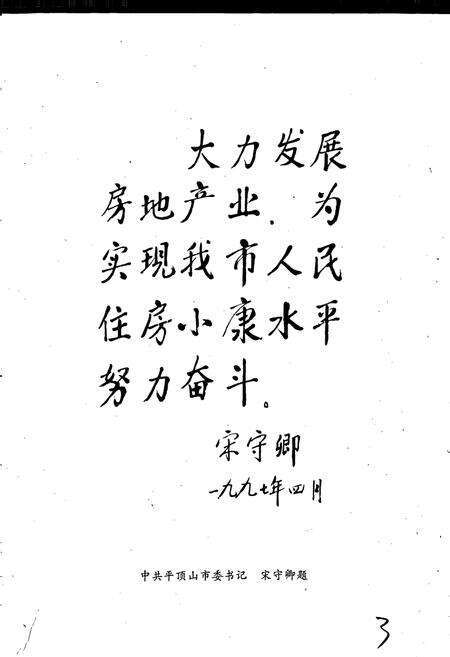 大力发展
房地产业、为
实现我市人民
住房小康水平
努力奋斗。
宋守卿
一九九七年四月
中共平顶山市委书记 宋守卿题
3